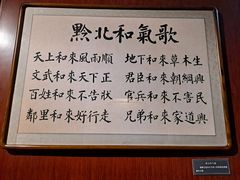 黔北和氣歌
天上和來風雨順　地下和來草木生
文武和來天下正　君臣和來朝綱興
百姓和來不告狀　官兵和來不害民
鄰里和來好行走　兄弟和來家道興